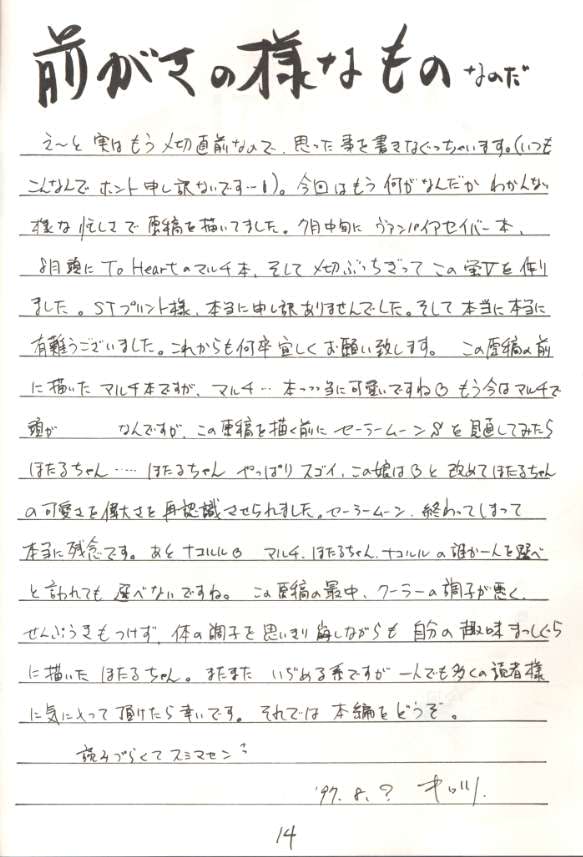 前がきの様なもの なのだ
え〜と 実はもう〆切直前なので、思った事を書きなぐっちゃいます。(いつも
こんなんで ホント申し訳ないです…!)。今回はもう何がなんだか わかんない
様な忙しさで原稿を描いてました。7月中旬に ヴァンパイアセイバー本、
8月頭に To Heartのマルチ本、そして〆切ぶっちぎって この蛍Vを作り
ました。STプリント様、本当に申し訳ありませんでした。そして本当に本当に
有難うございました。これからも何卒宜しくお願い致します。 この原稿の前
に描いた マルチ本ですが、マルチ… 本っっ当に可愛いですね もう今はマルチで
頭が なんですが、この原稿を描く前に セーラームーンSを見直してみたら
ほたるちゃん…… ほたるちゃん やっぱり スゴイ、この娘は と 改めてほたるちゃん
の可愛さを偉大さを再認識させられました。セーラームーン、終わってしまって
本当に残念です。あとナコルル マルチ、ほたるちゃん、ナコルルの誰か一人を選べ
と言われても 選べないですね。 この原稿の最中、クーラーの調子が悪く、
せんぷうきもつけず、体の調子を思いきり崩しながらも 自分の趣味まっしぐら
に描いた ほたるちゃん。またまた いぢめる系ですが 一人でも多くの読者様
に気に入って頂けたら幸いです。それでは 本編をどうぞ。
読みづらくてスミマセン
'97.8.?
14